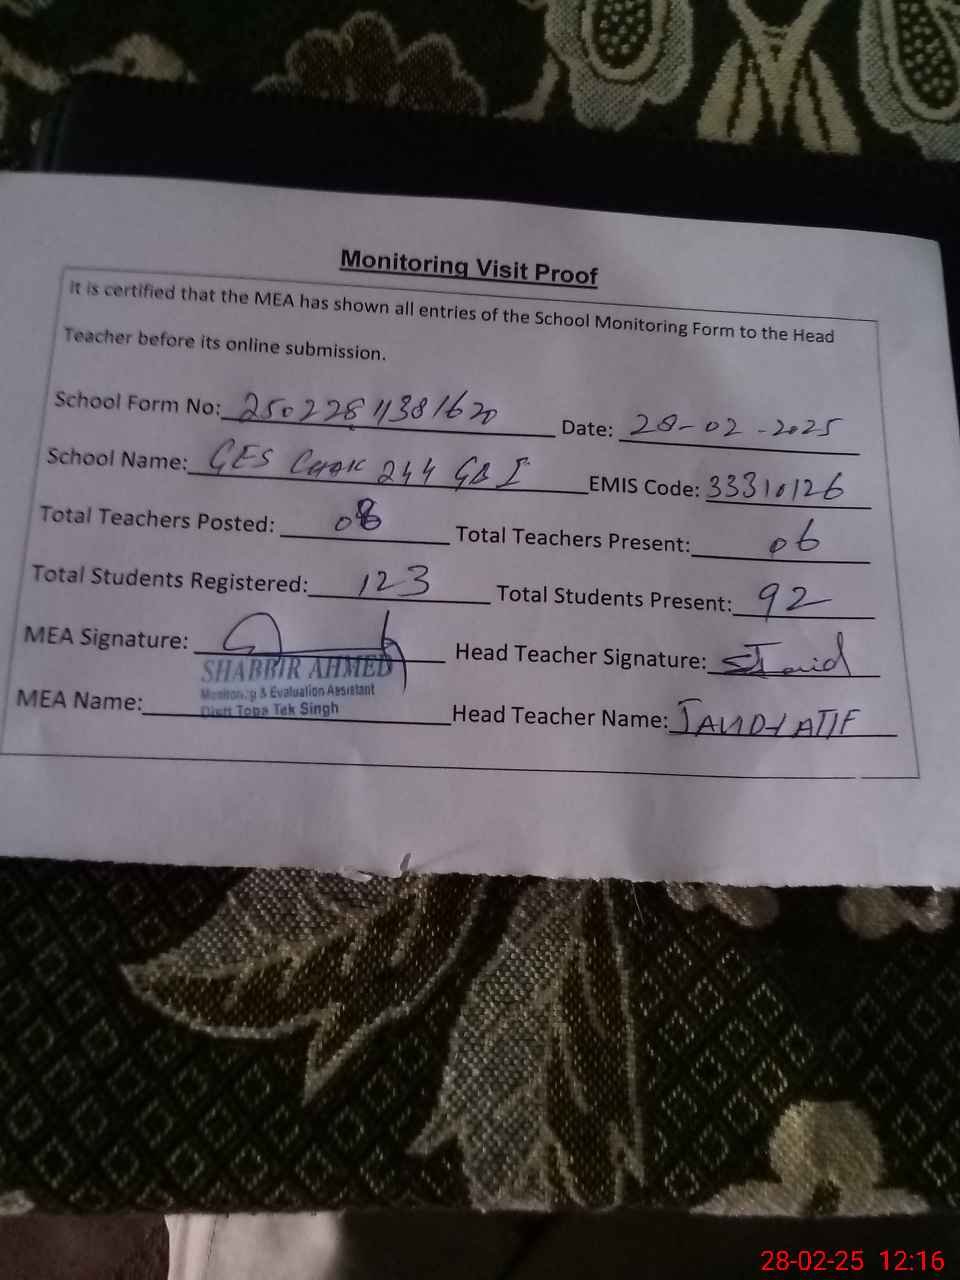 Monitoring Visit Proof
It is certified that the MEA has shown all entries of the School Monitoring Form to the Head
Teacher before its online submission.
School Form No: 25022811381620 Date: 28-02-2025
School Name: GES CHAK 244 GB I EMIS Code: 33310126
Total Teachers Posted: 08 Total Teachers Present: 06
Total Students Registered: 123 Total Students Present: 92
MEA Signature: Head Teacher Signature: Javid
SHABBIR AHMED
Monitoring & Evaluation Assistant
Distt Toba Tek Singh
MEA Name: Head Teacher Name: JAVID LATIF
28-02-25 12:16